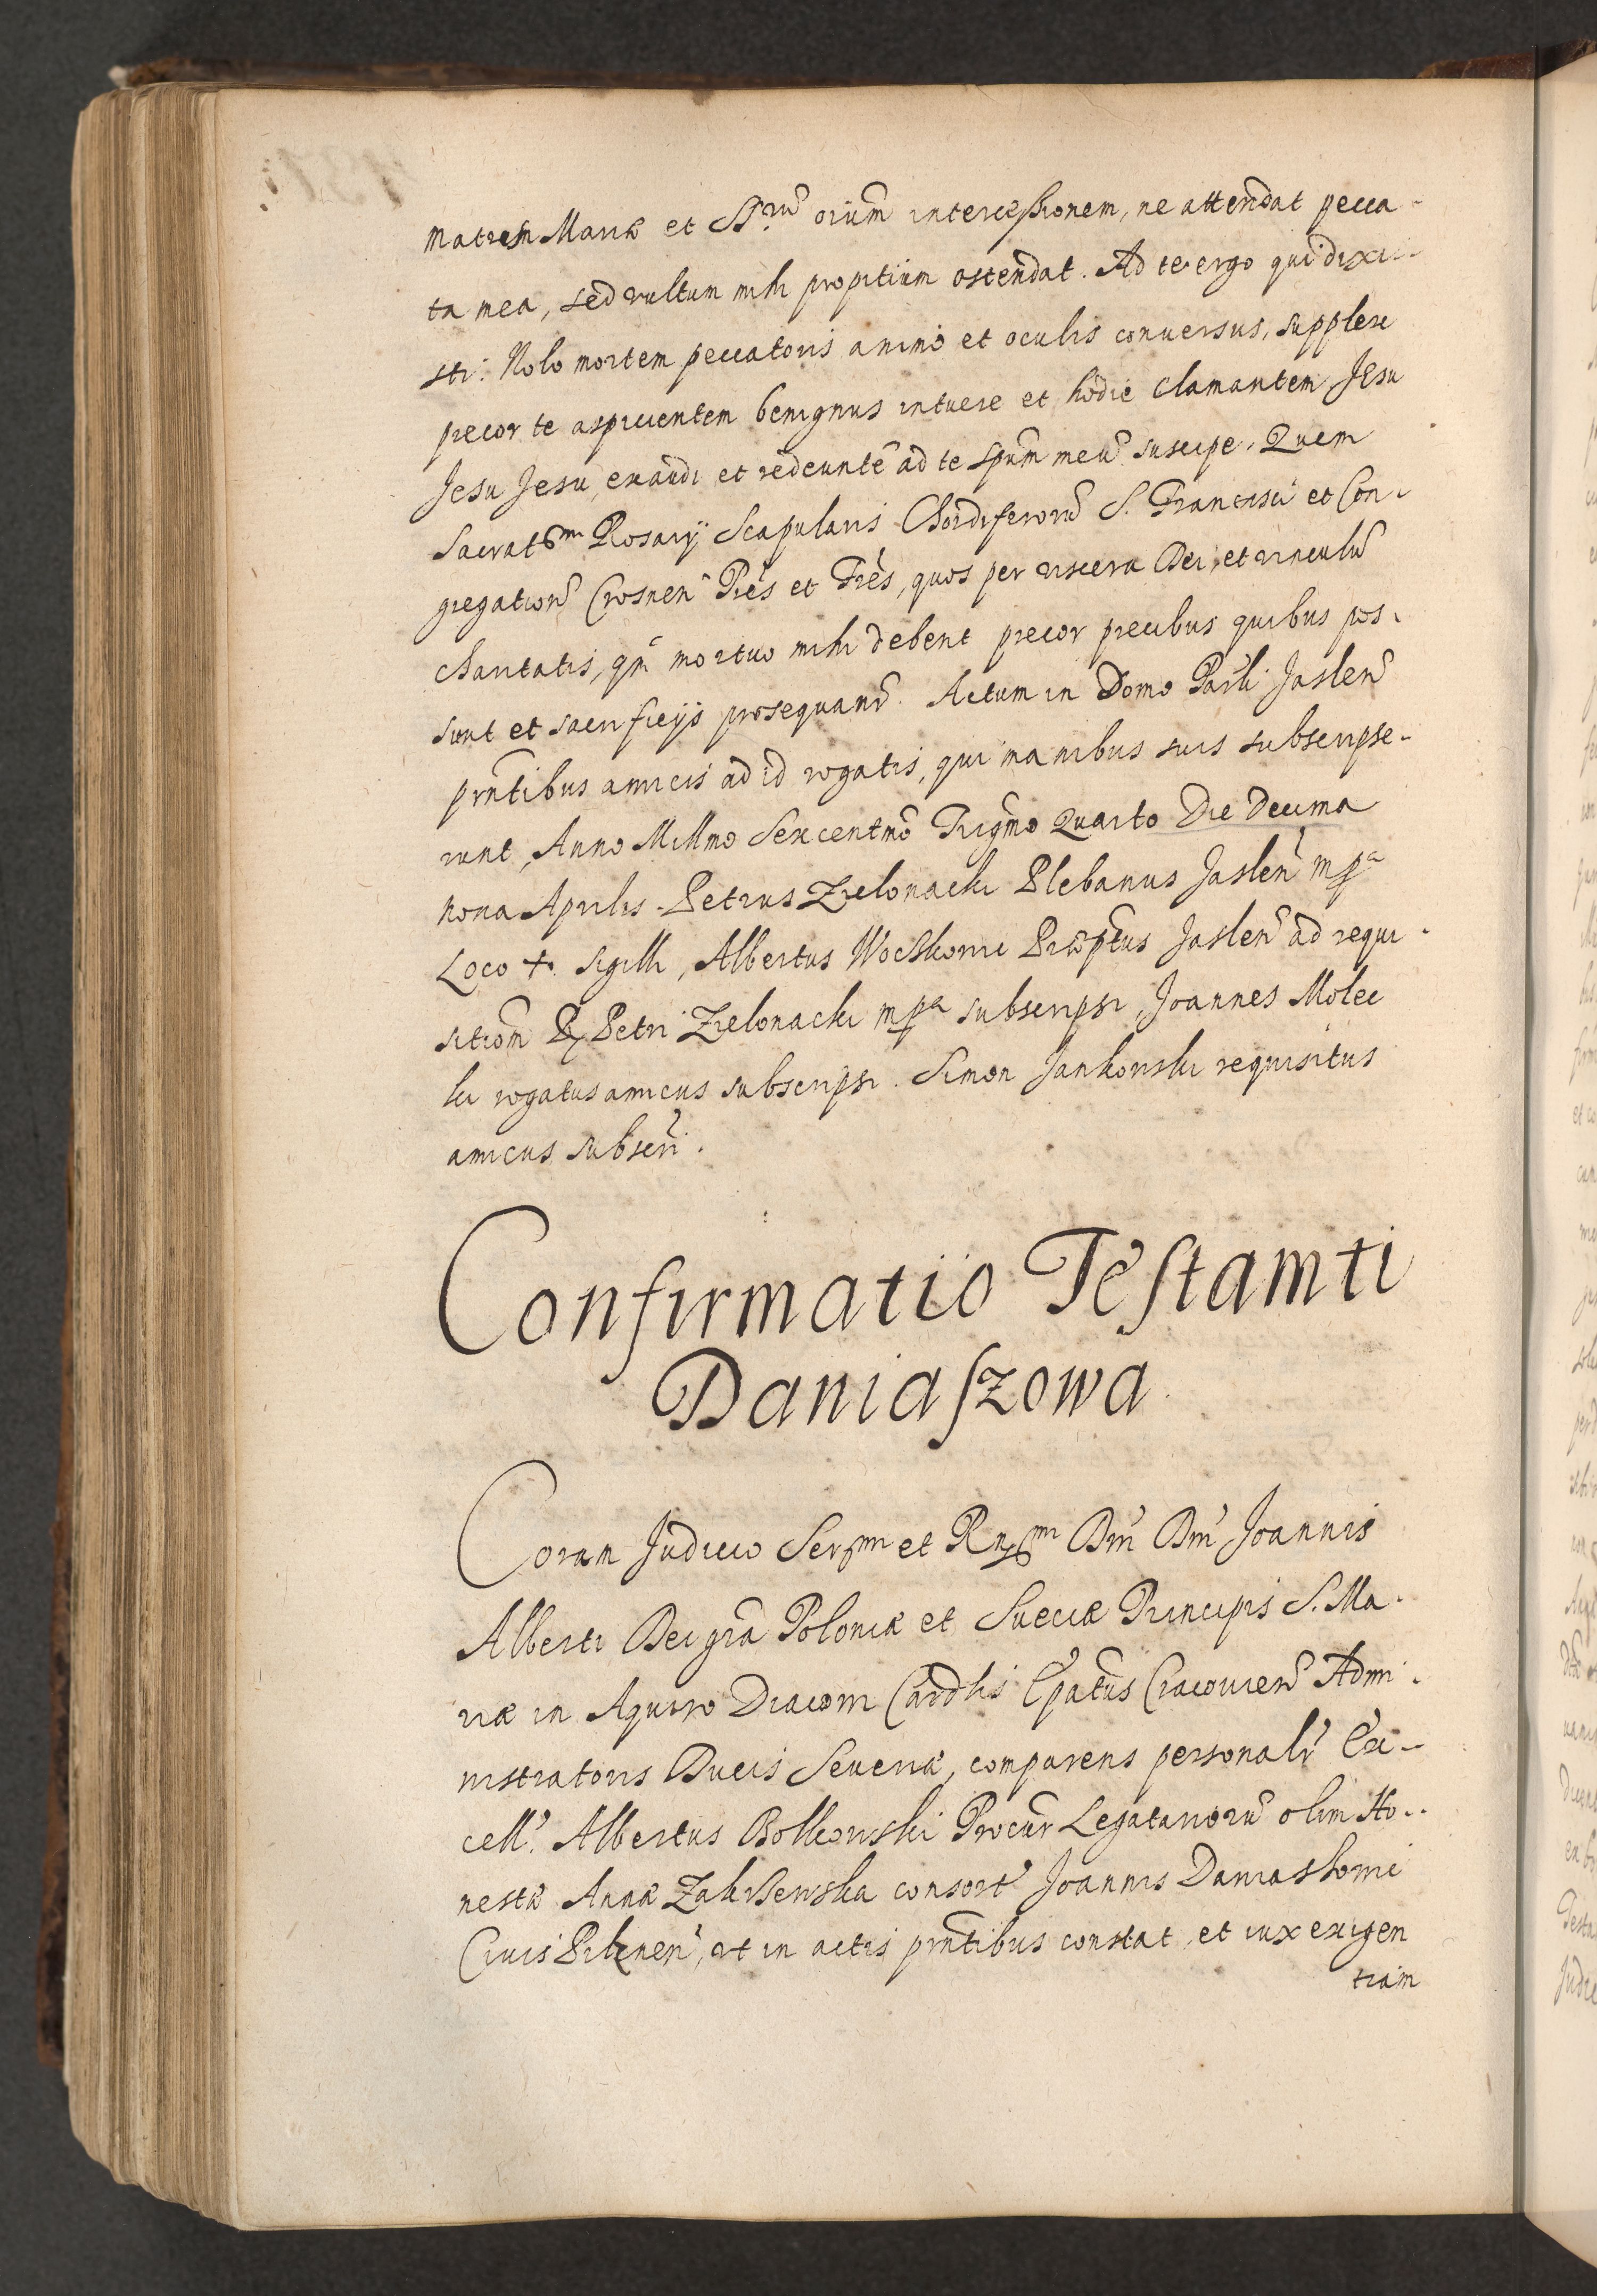 Matrem Mariæ et SS.rũ oiũm intercessionem, ne attendat pecca-
ta mea, sed vultum mihi propitium ostendat. Ad te ergo qui dixi-
sti: Nolo mortem peccatoris animo et oculis conuersus, supplex
precor te aspicientem benignus intuere et hodie clamantem Jesu
Jesu Jesu, exaudi et redeuntẽ ad te spũm meũ suscipe. Quem
Sacratssmi Rosarij Scapularis Chordiferorũ S. Francisci et Con-
gregationũ Crosnen̄ Prẽs et Frẽs, quos per viscera Dei, et vinculũ
charitatis, qm̃ mortuo mihi debent precor precibus quibus pos-
sunt et sacrificijs prosequanr̃. Actum in Domo Par̃li Jaslen̄
pm̃tibus amicis ad id rogatis, qui manibus suis subscripse-
runt, Anno Millmo Sexcentmõ Trigm̃o Quarto Die Decima
nona Aprilis. Petrus Zielonacki Plebanus Jaslen̄ mpa
Loco +. sigilli, Albertus Præptũs Jaslen̄ ad requi-
sitiom̃ Petri Zielonacki mpa subscripsi, Joannes Molec
ki rogatus amicus subscripsi. Simon Jankowski requisitus
amicus subscri.
Confirmatio Testamti
Daniaszowa.
Coram Judicio Serssmi et Rndssmi Dni Dni Joannis
Alberti Dei gra͠ Poloniæ et Sueciæ Principis S. Ma-
riæ in Aquiro Diaconi Cardlis Ep̃atus Cracouien̄ Admi-
nistratoris Ducis Seueriæ, comparens personalr̃ Ex-
cell. Albertus Bolkowski Procur̃ Legatariorũ olim Ho-
nestæ Annæ Zakrzewska consort Joannis Daniaskowic
Ciuis Pilznen̄, vt in actis pm̃tibus constat, et iux exigen
tiam